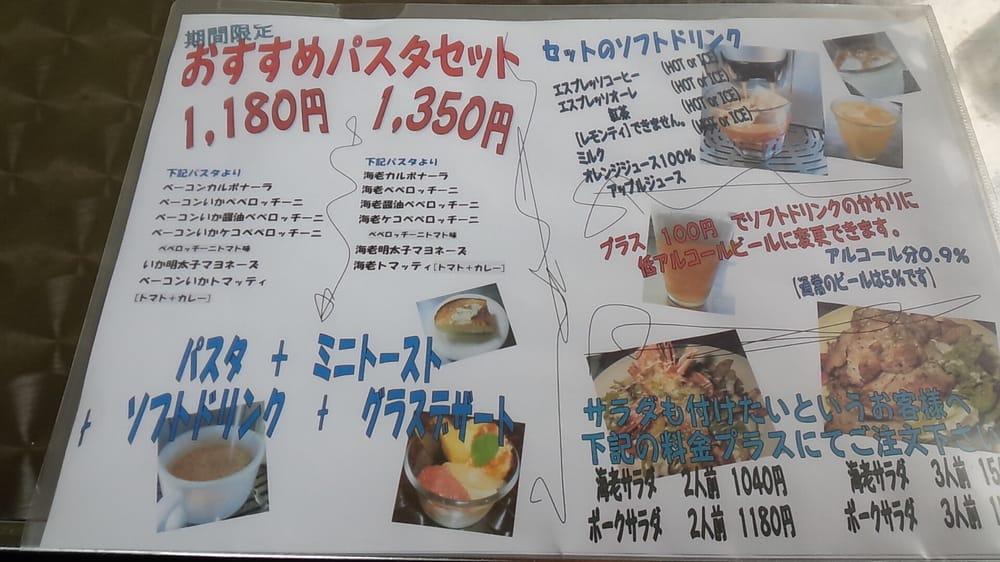 期間限定
おすすめパスタセット
1,180円 1,350円
下記パスタより
ベーコンカルボナーラ
ベーコンいかペペロッチーニ
ベーコンいか醤油ペペロッチーニ
ベーコンいかケコペペロッチーニ
ペペロッチーニトマト味
いか明太子マヨネーズ
ベーコンいかトマッティ
[トマト+カレー]
下記パスタより
海老カルボナーラ
海老ペペロッチーニ
海老醤油ペペロッチーニ
海老ケコペペロッチーニ
ペペロッチーニトマト味
海老明太子マヨネーズ
海老トマッティ[トマト+カレー]
パスタ + ミニトースト
+ ソフトドリンク + グラスデザート
セットのソフトドリンク
エスプレッソコーヒー (HOT or ICE)
エスプレッソオーレ (HOT or ICE)
紅茶 (HOT or ICE)
[レモンティ]できません。 (HOT or ICE)
ミルク
オレンジジュース100%
アップルジュース
プラス 100円 でソフトドリンクのかわりに
低アルコールビールに変更できます。
アルコール分0.9%
(通常のビールは5%です)
サラダも付けたいというお客様へ
下記の料金プラスにてご注文下さ
海老サラダ 2人前 1040円
海老サラダ 3人前 15
ポークサラダ 2人前 1180円
ポークサラダ 3人前